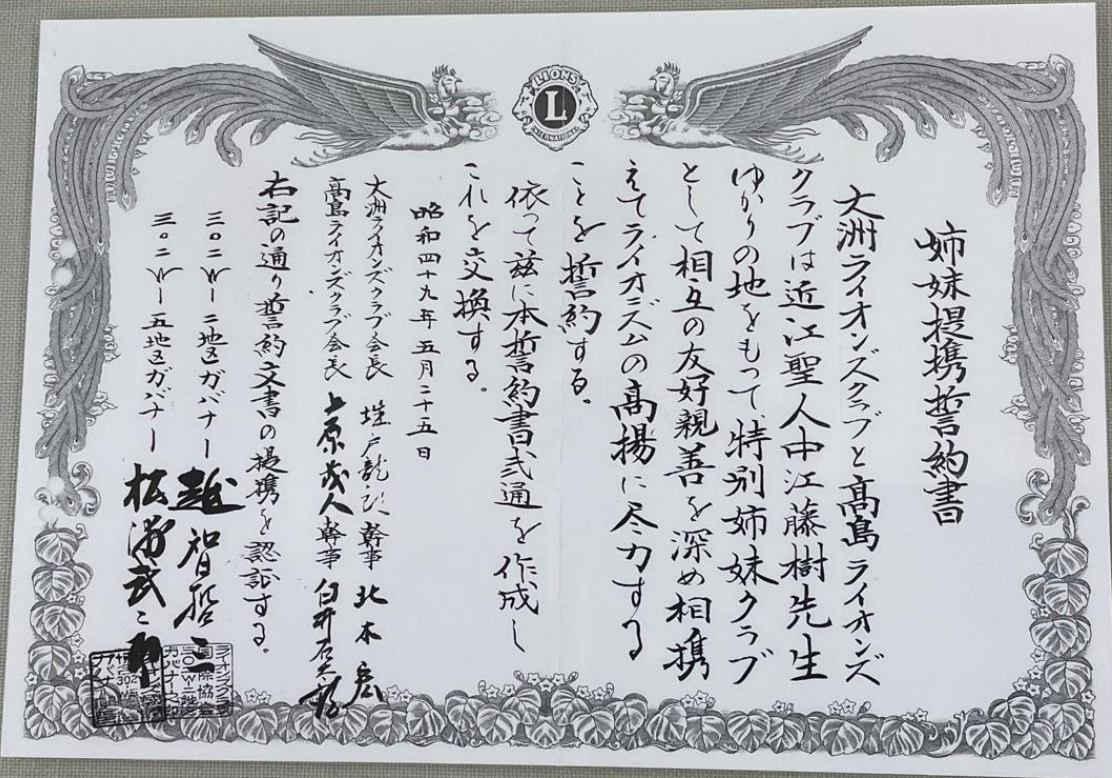 LIONS
L
INTERNATIONAL
姉妹提携誓約書
大洲ライオンズクラブと高島ライオンズ
クラブは近江聖人中江藤樹先生
ゆかりの地をもって、特別姉妹クラブ
として相互の友好親善を深め相携
えてライオニズムの高揚に尽力する
ことを誓約する。
依って茲に本誓約書弐通を作成し
これを交換する。
昭和四十九年五月二十五日
大洲ライオンズクラブ会長 幹事 北本宏
高島ライオンズクラブ会長 上原茂人 幹事 白井
右記の通り誓約文書の提携を認証する。
三〇二W－二地区ガバナー 越智
三〇二W－五地区ガバナー 松浦武二郎